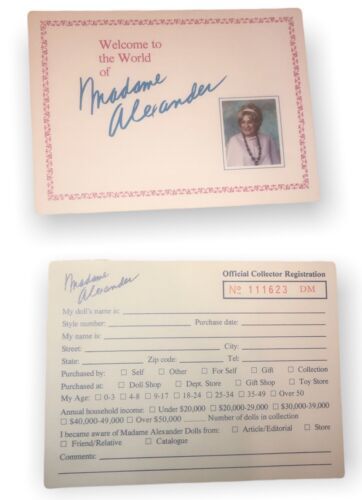 Welcome to
the World
of
Madame
Alexander
Madame
Alexander
Official Collector Registration
No 111623 DM
My doll's name is:
Style number: Purchase date:
My name is:
Street: City:
State: Zip code: Tel:
Purchased by: □ Self □ Other □ For Self □ Gift □ Collection
Purchased at: □ Doll Shop □ Dept. Store □ Gift Shop □ Toy Store
My Age: □ 0-3 □ 4-8 □ 9-17 □ 18-24 □ 25-34 □ 35-49 □ Over 50
Annual household income: □ Under $20,000 □ $20,000-29,000 □ $30,000-39,000
□ $40,000-49,000 □ Over $50,000 Number of dolls in collection
I became aware of Madame Alexander Dolls from: □ Article/Editorial □ Store
□ Friend/Relative □ Catalogue
Comments: